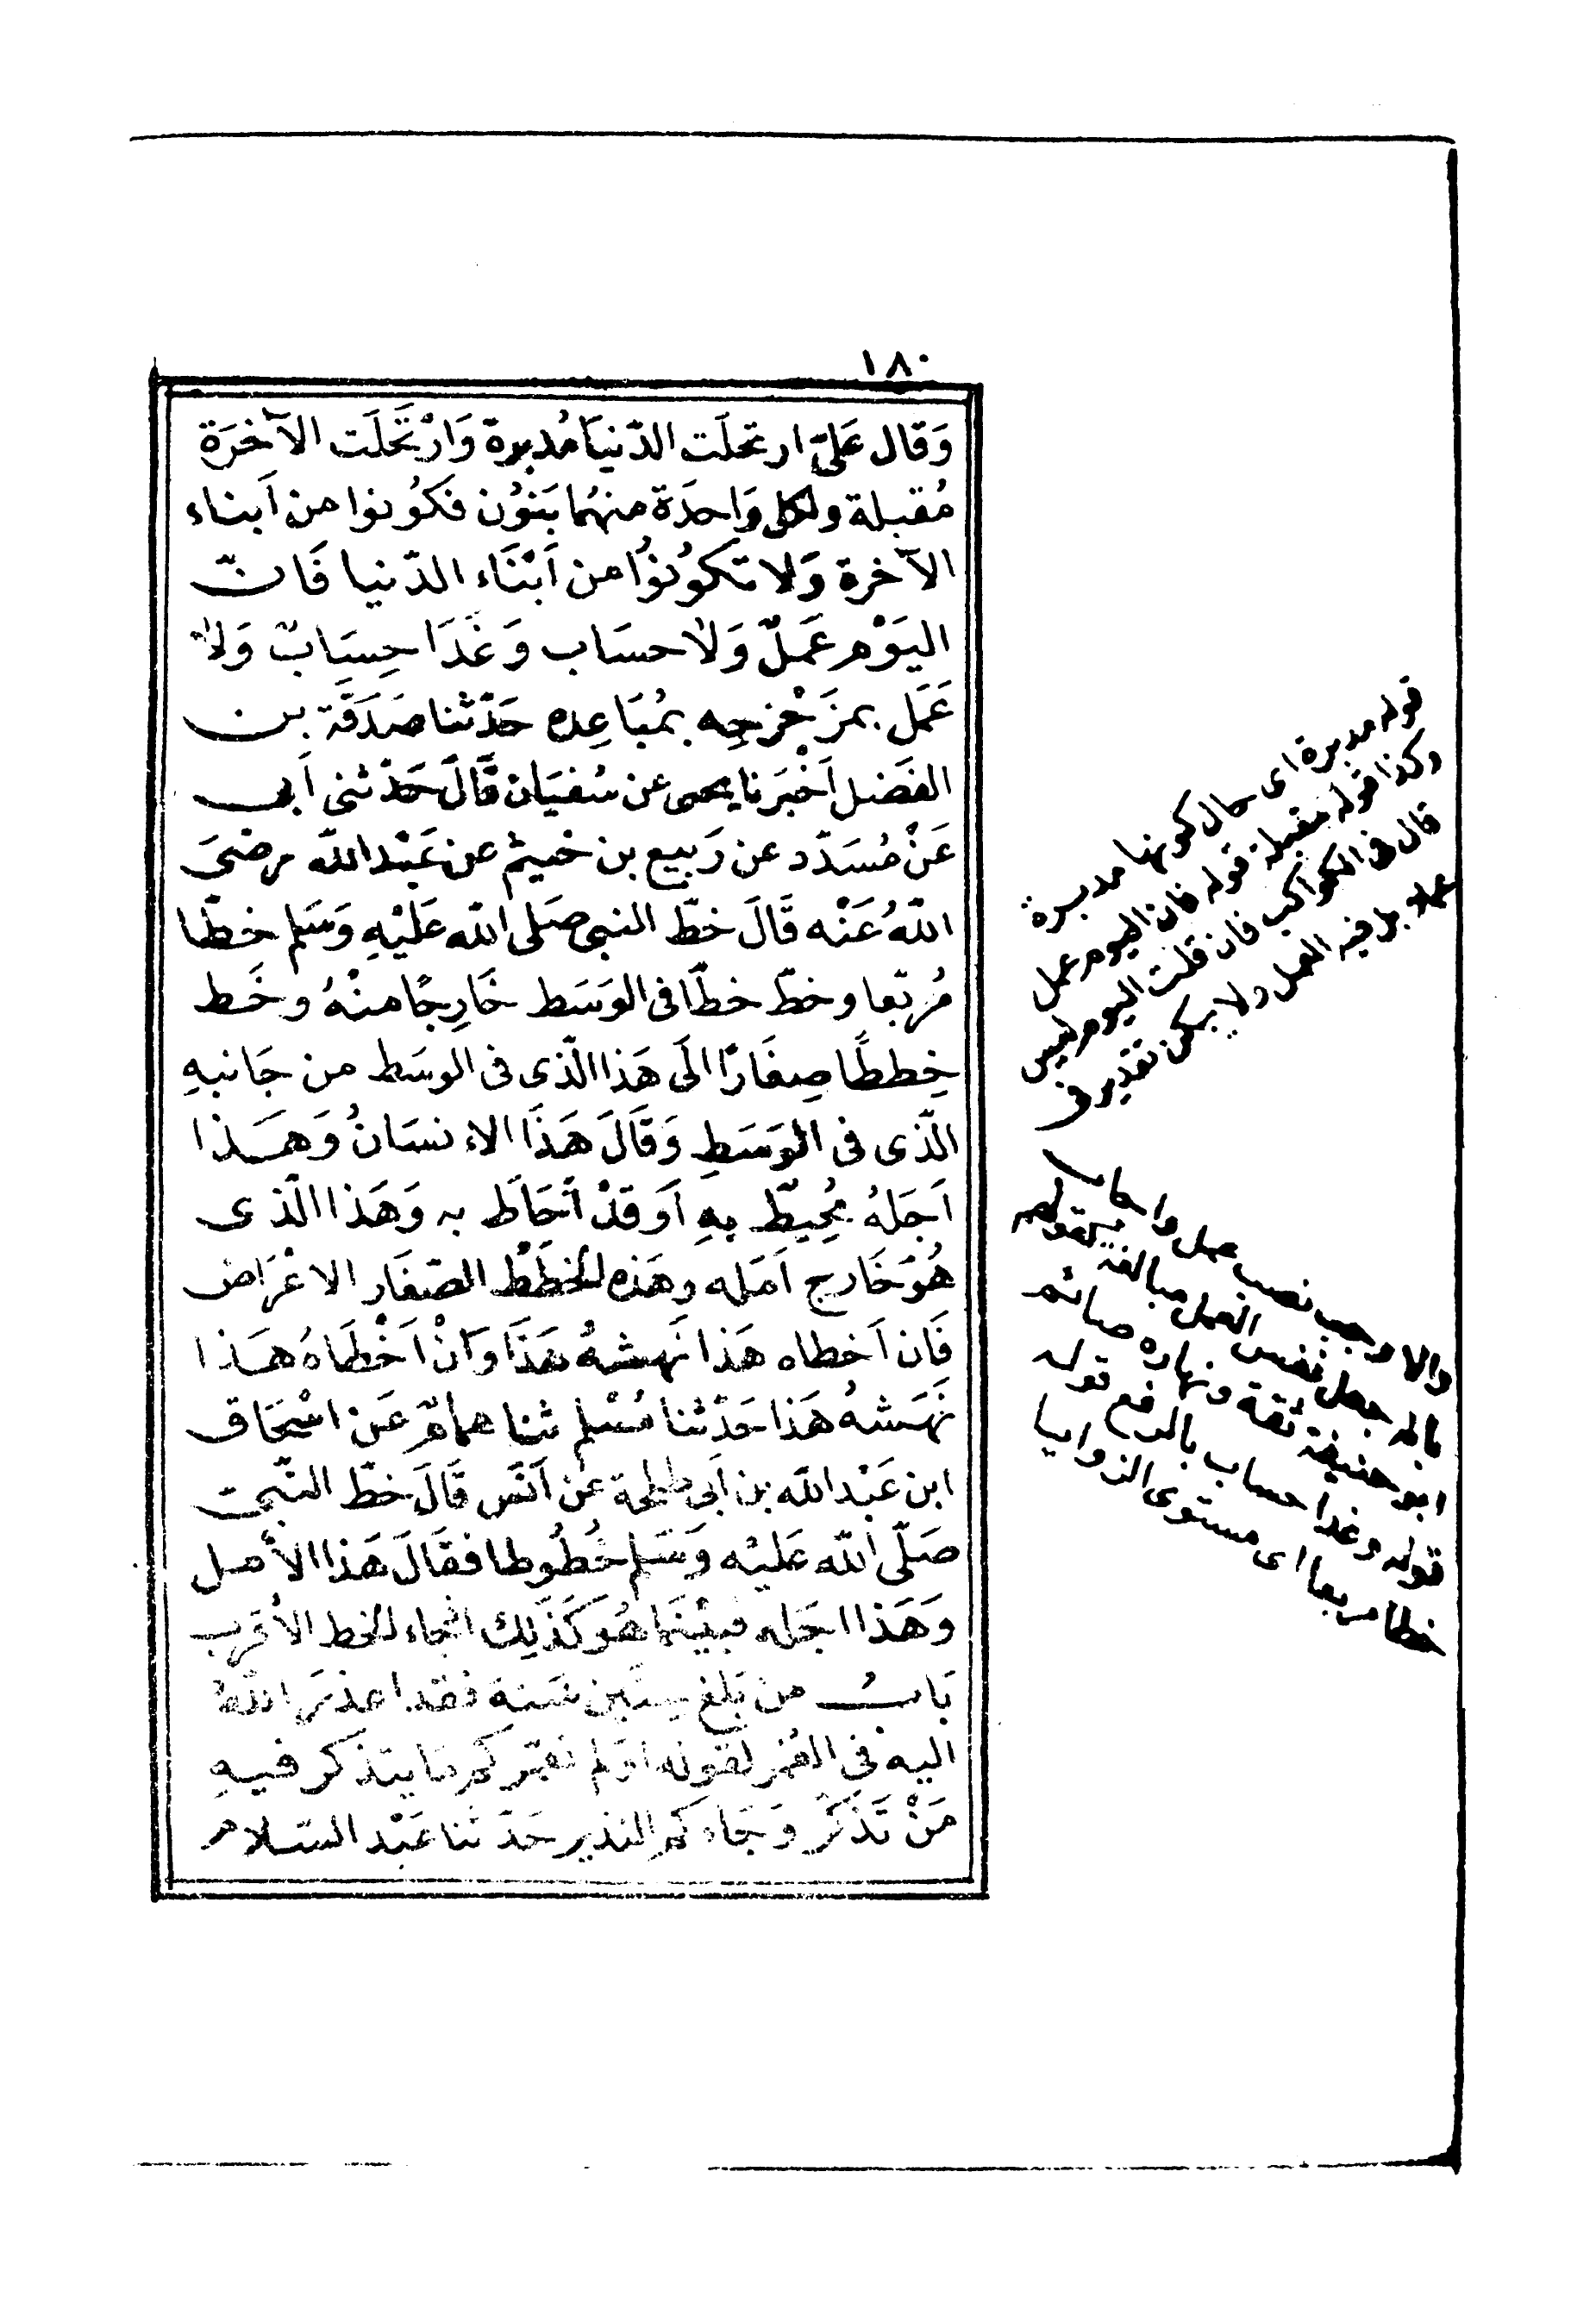 ١٨٠
وَقال عَلىّ ارتحلَت الدّنيَا مُدبرة وَارْتَحَلَت الآخرَة
مُقبلة ولكل وَاحدَة منهُما بَنوُن فكوُنوا من اَبناء
الآخرة وَلا تكوُنوُا من اَبْنَاء الدّنيا فَانّ
اليَوْم عَمَلٌ وَلا حسَاب وَغَدَا حِسَابٌ وَلا
عَمَل بمزَحْزحِه بمُبَاعِده حَدّثنا صَدَقَة بن
الفَضل اَخْبَرَنا يحيى عن سُفيَان قَالَ حَدّثنى اَبى
عَنْ مُسَدّد عن رَبيع بن خثيم عن عَبْد الله رضىَ
اللهُ عَنْه قَالَ خطّ النبى صَلى الله عَلَيْهِ وَسَلم خطّا
مُربّعا وخطّ خطّا فى الوَسَط خَارِجًا منْهُ وخَط
خِططًا صِغَارًا الَى هَذا الّذى فى الوسَط من جَانبهِ
الّذى فى الوَسَطِ وَقَالَ هَذَا الاءنسَانُ وَهَـذا
اَجَلهُ مُحِيطٌ بهِ اَوقدْ اَحَاطَ به وَهَذا الّذى
هُوَ خَارج اَمَله وهَذه الخطَطُ الصّغَار الاعْرَاض
فَان اَخطاه هَذا نَهشهُ هَذَا وَانْ اَخْطَاهُ هَـذا
نَهَشهُ هَذا حَدّثنا مُسْلم ثنا همامٌ عَن اسْحَاق
ابن عَبْد الله بن اَبى طلحة عَن اَنَس قَالَ خطّ النّبىّ
صَلّى الله عَليْه وَسَلم خُطُوطا فقَالَ هَذا الأمل
وَهَذا اجَله فبيْنَما هُوَ كَذَلِك اذجاء الخط الأقرب
بَابُ من بَلغ سِتّين سَنة فقد اعذرَ اللهُ
اليه فى العُمُر لقوله اوَلم نعمّركم مَا يتذكر فيهِ
مَنْ تَذَكّر وَجَاءكم النذير حَدّثنا عَبْد السّلام
قوله مدبرة اى حال كونها مدبرة
وكذا قوله مقبلة قوله فان اليوم عمل
قال فى الكواكب فان قلت اليوم ليس
عملا بل فيه العمل ولا يمكن تقدير فى
والا وجب نصب عمل واجاب
بانه جعل نفس العمل مبالغة كقولهم
ابو حنيفة ثقة ونهاره صائم
قوله وغدا حساب بالرفع قوله
خطا مربعا اى مستوى الزوايا